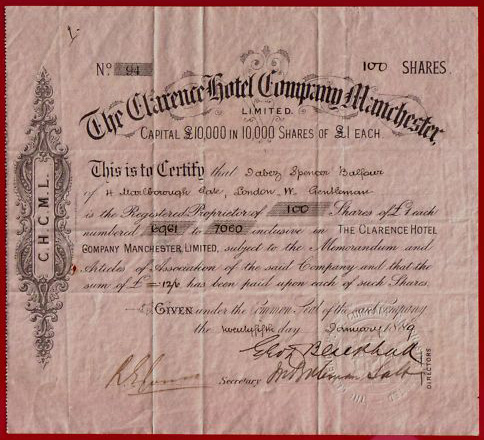 No. 94
100 SHARES.
The Clarence Hotel Company Manchester,
LIMITED.
CAPITAL £10,000 IN 10,000 SHARES OF £1 EACH.
C.H.C.M.L.
This is to Certify that Jabez Spencer Balfour
of 4 Marlborough Gate, London W. Gentleman
is the Registered Proprietor of 100 Shares of £1 each
numbered 6961 to 7060 inclusive in THE CLARENCE HOTEL
COMPANY MANCHESTER, LIMITED, subject to the Memorandum and
Articles of Association of the said Company and that the
sum of £ = 12/6 has been paid upon each of such Shares.
GIVEN under the Common Seal of the said Company
the twentyfifth day January 1889
Secretary
DIRECTORS